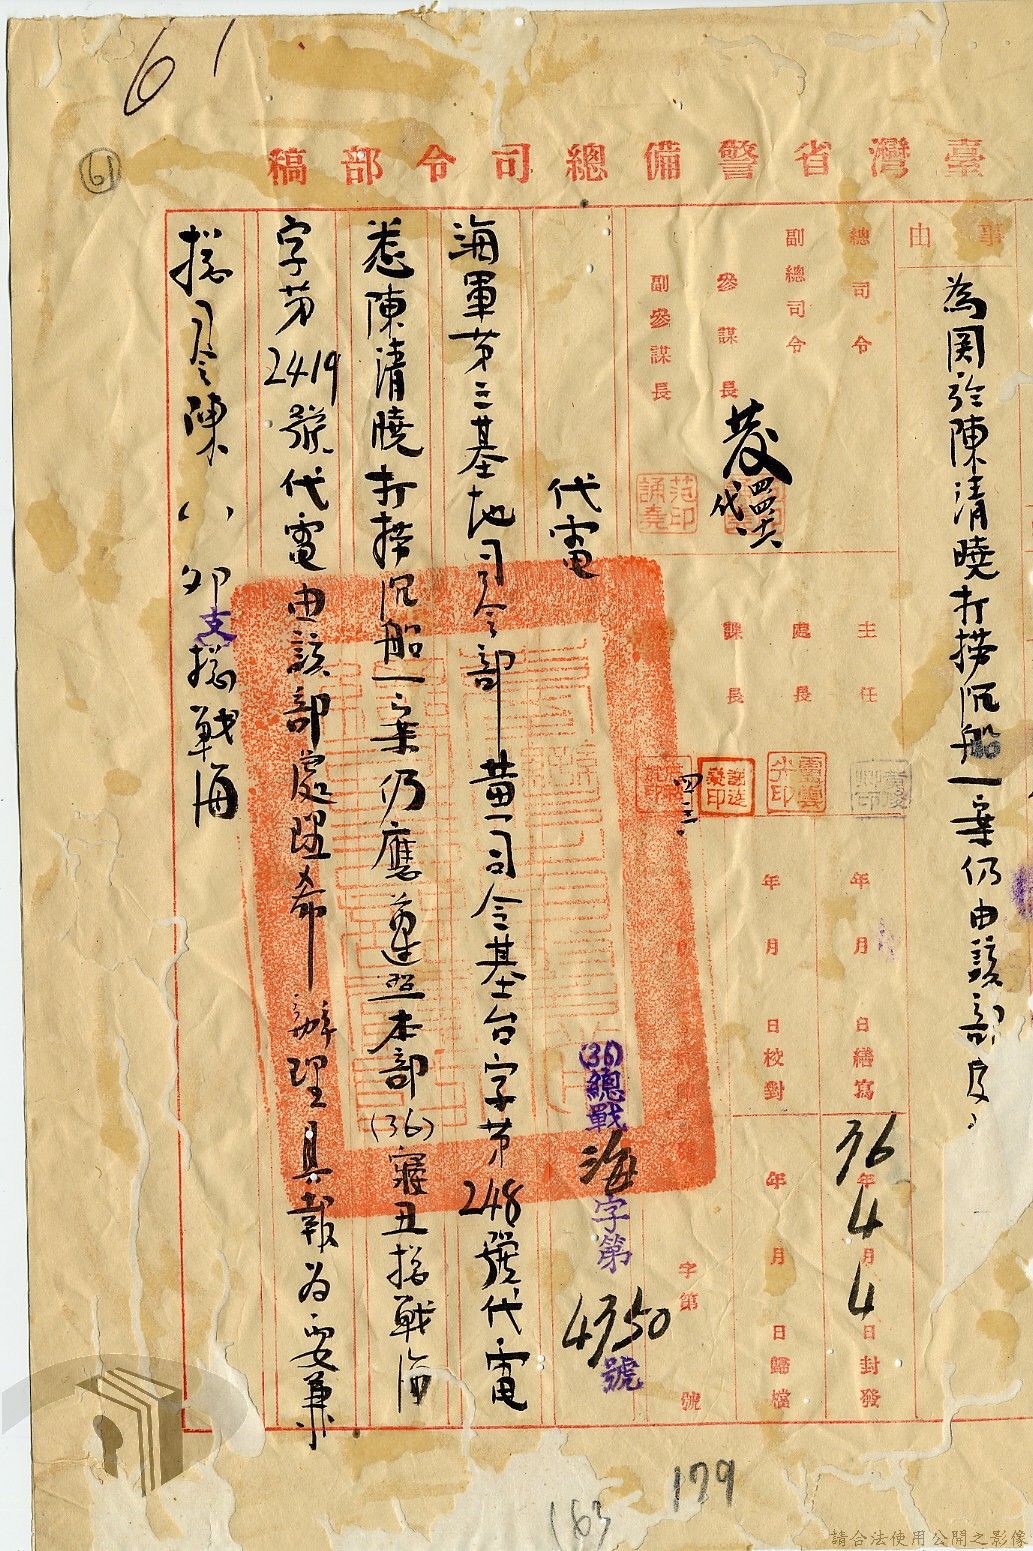 61
61
臺灣省警備總司令部稿
事由
為関於陳清曉打撈沉船一案仍由該部
總司令
副總司令
參謀長
副參謀長
代
主任
處長
課長
年 月 日繕寫
年 月 日校對
36年4月4日封發
年 月 日歸檔
字第 號
代電
(36)總戰海字第4750號
海軍第三基地司令部黃司令基台字第248號代電
悉陳清曉打撈沉船一案仍應遵照本部(36)寢丑總戰海
字第2419號代電由該部處理希辦理具報為要兼
總司令陳〇卯支總戰海
179
163
請合法使用公開之影像